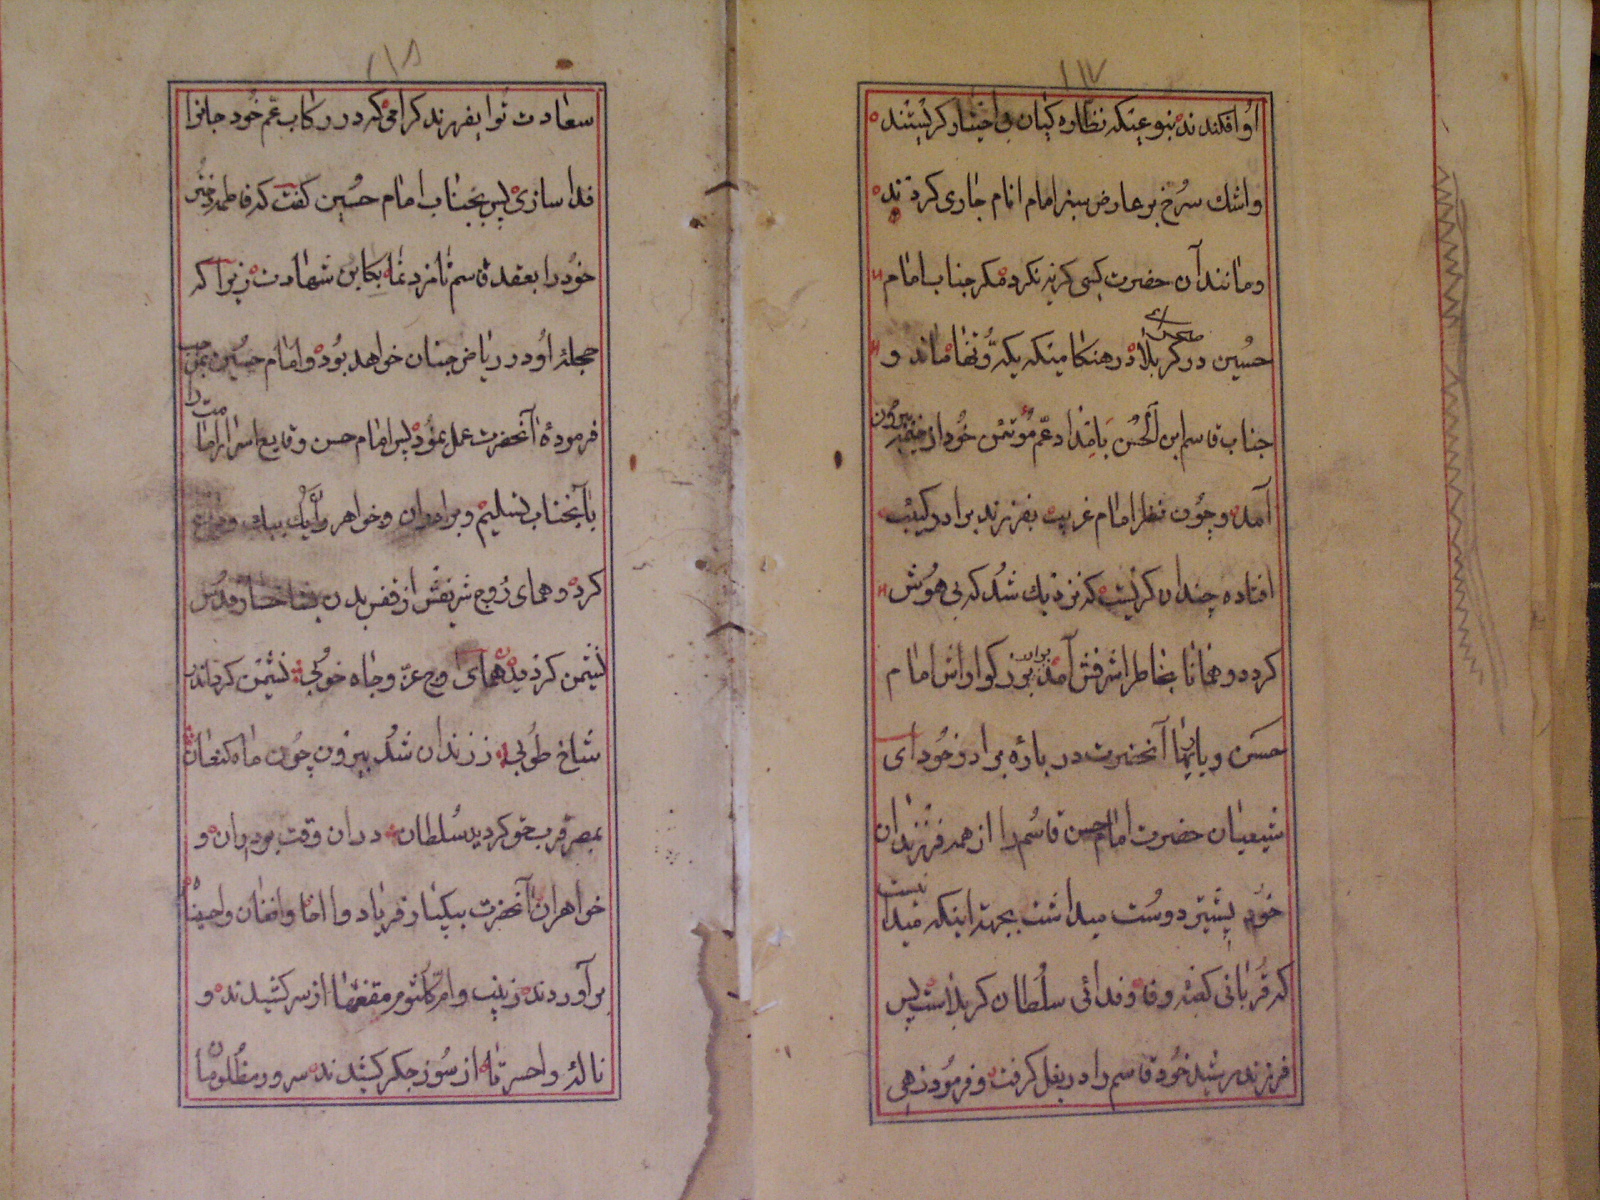 ۱۱۷
او افکندند بنوعیکه نظاره کیان بی اختیار کریستند
و اشک سرخ بر عارض سبز امام انام جاری کردند
و مانند آن حضرت کسی کریه نکرد مکر جناب امام
حسین در صحرای کربلا در هنکامیکه یکه و تنها ماند و
جناب قاسم ابن الحسن بامداد عم مؤتمن خود از خیمه بیرون
آمد و چون نظر امام غریب بفرزند برادر
افتاده چندان کریست که نزدیک شد که بی هوش
کردد و همانا بخاطر اشرفش آمد برادر بزرکوارش امام
حسن و آنحضرت در باره برادر خود ای
شیعیان حضرت امام حسن قاسم را از همه فرزندان
خود بیشتر دوست میداشت بجهة اینکه میدانست
که قربانی کعبه وفا و فدائی سلطان کربلاست پس
فرزند رشید خود قاسم را در بغل کرفت و فرمود زهی
۱۱۸
سعادت تو ایفرزند کرامی که در رکاب عم خود جانرا
فدا سازی پس بجناب امام حسین کفت که فاطمه دختر
خود را بعقد قاسم نامزد نما بکابین شهادت زیرا که
حجله او در ریاض جنان خواهد بود و امام حسین
فرموده آنحضرت عمل نمود پس امام حسن ودایع اسرار امامت را
بآنجناب تسلیم و برادران و خواهر را یک بیک وداع
کرد و همای روح شریفش از قفس بدن بشاخسار قدس
نشیمن کردید همای اوج عز و جاه خوبی نشیمن کرد
شاخ طوبی ز زندان شد بیرون چون ماه کنعان
بمصر قرب حق کردید سلطان در ان وقت برادران و
خواهران آنحضرت بیکبار فریاد وا اماما و افغان
برآوردند زینب و ام کلثوم مقنعها از سر کشیدند و
ناله واحسرتاه از سوز جکر کشیدند سرور مظلومان